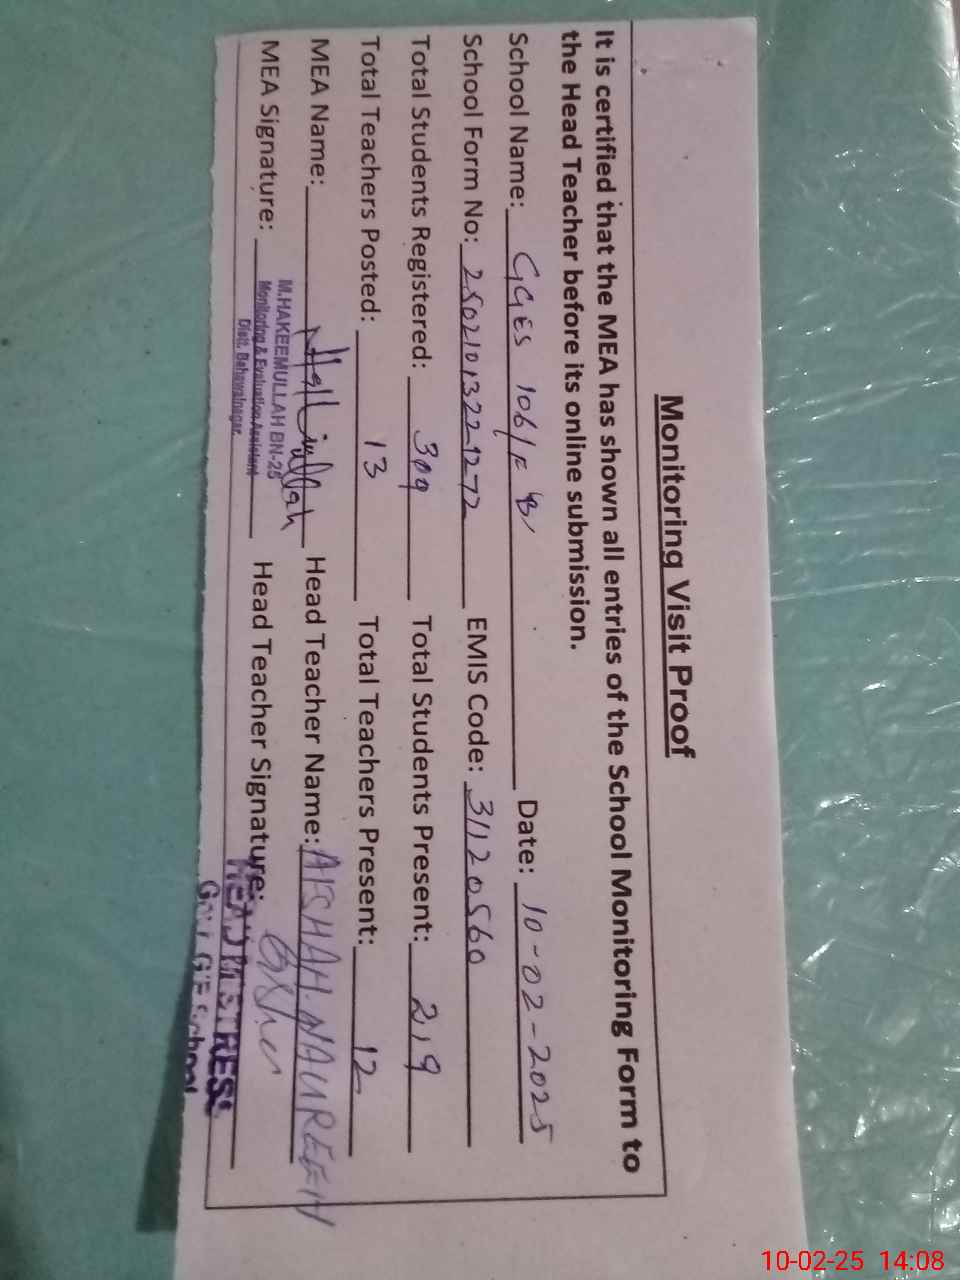 Monitoring Visit Proof
It is certified that the MEA has shown all entries of the School Monitoring Form to
the Head Teacher before its online submission.
School Name: GGES 106/F B/ Date: 10-02-2025
School Form No: 2502101322-12-72 EMIS Code: 31120560
Total Students Registered: 309 Total Students Present: 219
Total Teachers Posted: 13 Total Teachers Present: 12
MEA Name: Head Teacher Name: AISHAH.NAUREEN
MEA Signature: Head Teacher Signature:
M.HAKEEMULLAH BN-25
Monitoring & Evaluation Assistant
Distt. Bahawalnagar.
HEADMISTRESS
School
10-02-25 14:08